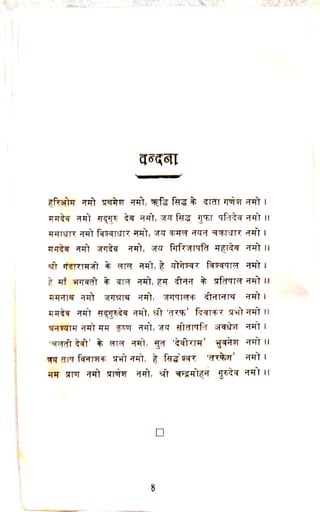 वन्दना
हरिओम नमो प्रथमेश नमो, ऋद्धि सिद्ध के दाता गणेश नमो ।
ममदेव नमो सद्गुरु देव नमो, जय सिद्ध गुफा पतिदेव नमो ॥
ममाधार नमो विश्वाधार नमो, जय कमल नयन चक्राधार नमो ।
ममदेव नमो जगदेव नमो, जय गिरिजापति महादेव नमो ॥
श्री गंडारामजी के लाल नमो, हे योगेश्वर विश्वपाल नमो ।
हे माँ भगवती के बाल नमो, हम दीनन के प्रतिपाल नमो ॥
ममनाथ नमो जगन्नाथ नमो, जगपालक दीनानाथ नमो ।
ममदेव नमो सद्गुरुदेव नमो, श्री 'तरफ' दिवाकर प्रभो नमो ॥
घनश्याम नमो मम कृष्ण नमो, जय सीतापति अवधेश नमो ।
'चलती देवी' के लाल नमो, सुत 'देवीराम' भुवनेश नमो ॥
त्रय ताप विनाशक प्रभो नमो, हे सिद्धेश्वर 'तरफेश' नमो ।
मम प्राण नमो प्राणेश नमो, श्री चन्द्रमोहन गुरुदेव नमो ॥
8